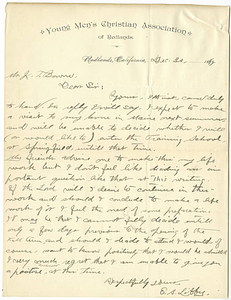 Young Men's Christian Association
of Redlands.
Redlands, California, Dec. 20, 189
Mr. J. T. Bowne,
Dear Sir:
Yours duly
to hand. In reply I will say, I expect to make
a visit to my home in Maine next summer
and will be unable to decide whether I will
(as I would like to) enter the Training School
at Springfield until that time.
My friends advise me to make this my life
work but I don't feel like deciding an im-
portant question like that at this writing.
If the Lord will I desire to continue in this
work and should I conclude to make it a life
work I feel the need of more preparation.
It may be that I cannot fully decide until
only a few days previous to the opening of the
fall term and should I decide to start I would of
course want to know positively that I would be admitted
I very much regret that I am unable to give you
a positive, at this time.
Respectfully Yours,